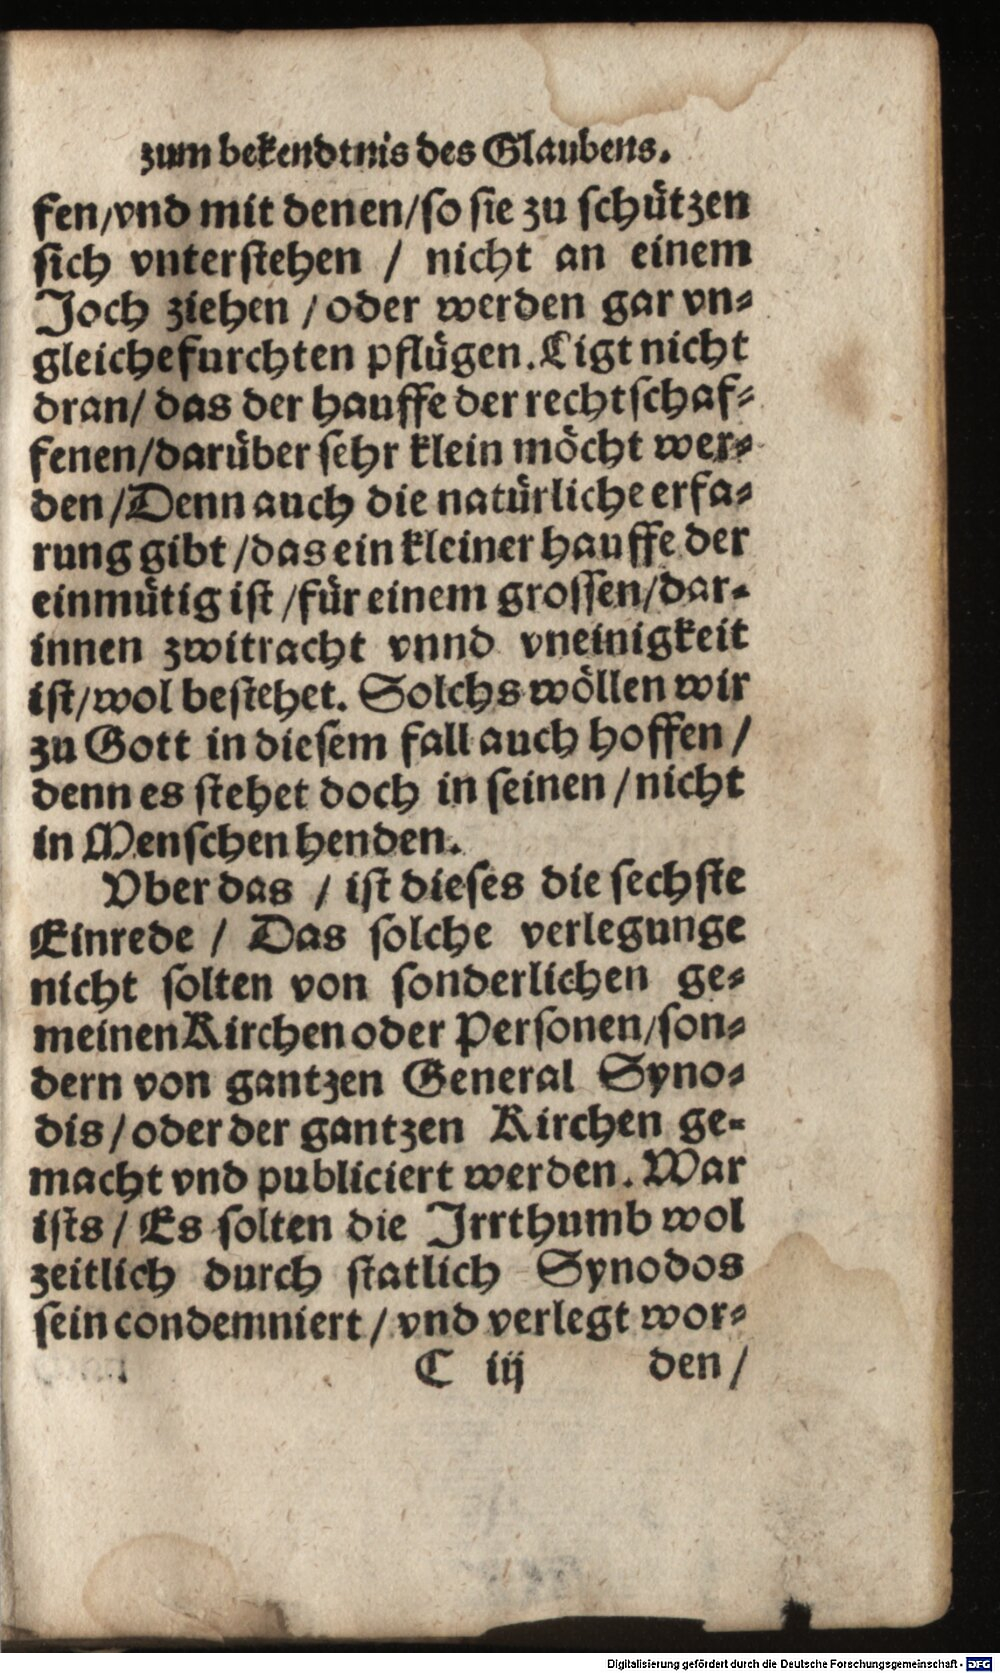 zum bekendtnis des Glaubens.
fen/vnd mit denen/so sie zu schützen
sich vnterstehen / nicht an einem
Joch ziehen / oder werden gar vn-
gleiche furchten pflügen. Ligt nicht
dran/ das der hauffe der rechtschaf-
fenen/darüber sehr klein möcht wer-
den /Denn auch die natürliche erfa-
rung gibt /das ein kleiner hauffe der
einmütig ist /für einem grossen/dar-
innen zwitracht vnnd vneinigkeit
ist/wol bestehet. Solchs wöllen wir
zu Gott in diesem fall auch hoffen /
denn es stehet doch in seinen / nicht
in Menschen henden.
Vber das / ist dieses die sechste
Einrede / Das solche verlegunge
nicht solten von sonderlichen ge-
meinen Kirchen oder Personen/son-
dern von gantzen General Syno-
dis / oder der gantzen Kirchen ge-
macht vnd publiciert werden. War
ists / Es solten die Jrrthumb wol
zeitlich durch statlich Synodos
sein condemniert / vnd verlegt wor-
C iij den /
Digitalisierung gefördert durch die Deutsche Forschungsgemeinschaft - DFG